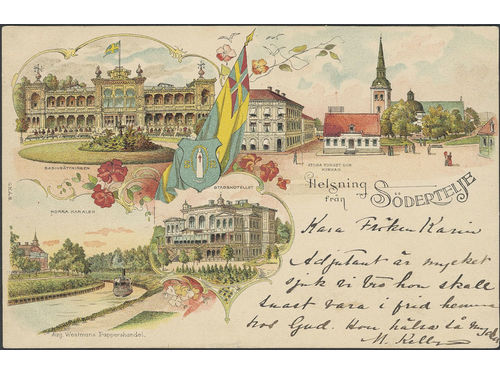 BADINRÄTTNINGEN
STORA TORGET OCH
KYRKAN.
Helsning
från
SÖDERTELJE
STADSHOTELLET
NORRA KANALEN
Kära Fröken Karin
Adjutant är mycket
sjuk vi tro hon skall
snart vara i frid hemma
hos Gud. Hon hälsa så
M. Kelly
Aug. Westmans Pappershandel.